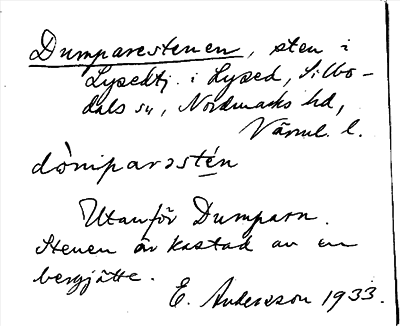 Dumparestenen, sten i
Lysedtj. i Lysed, Silbo-
dals sn, Nordmarks hd,
Värml. l.
dòmparəstén
Utanför Dumparn.
Stenen är kastad av en
bergjätte.
E. Andersson 1933.